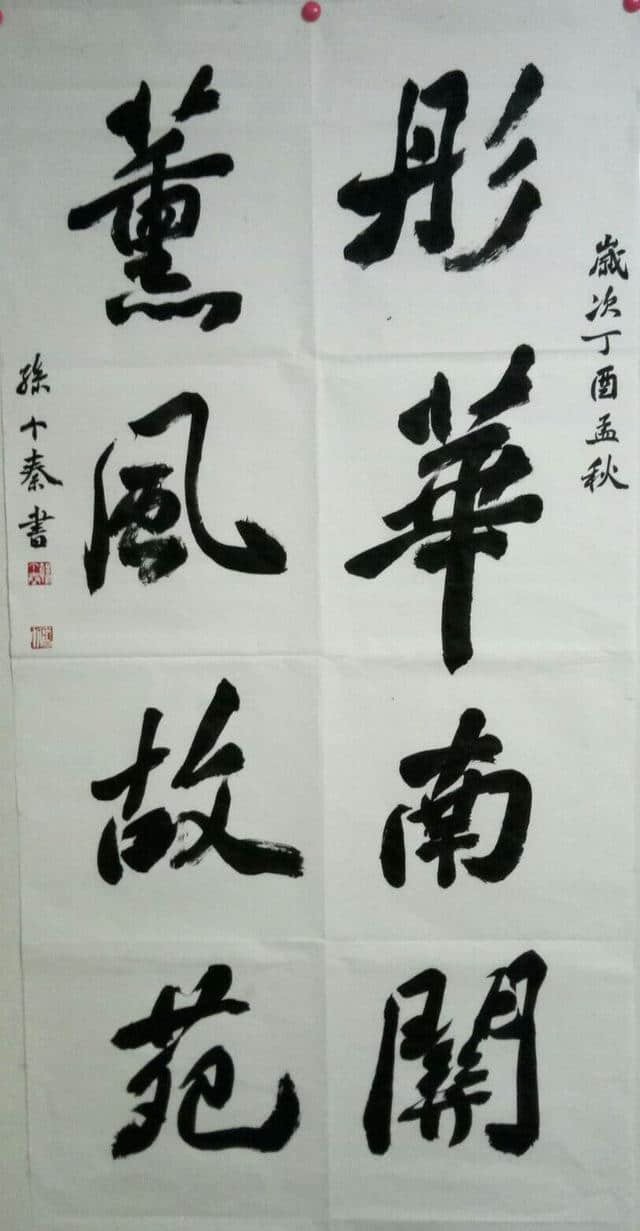 歲次丁酉孟秋
彤華南開
薰風故苑
孫 秦書